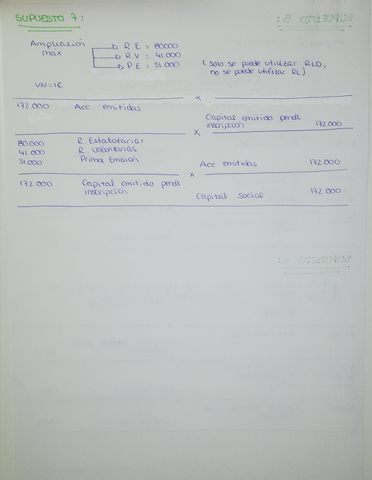 SUPUESTO 7:
Ampliación max
R.E = 80000
R.V = 41.000
P.E = 51.000
( solo se puede utilizar RLD, no se puede utilizar RL).
VN = 1€
x
172.000 Acc emitidas
Capital emitido pendt inscripción 172.000
x
80000 R. Estatutarias
41.000 R. Voluntarias
51.000 Prima Emisión
Acc emitidas 172.000
x
172.000 Capital emitido pendt inscripción
Capital Social 172.000